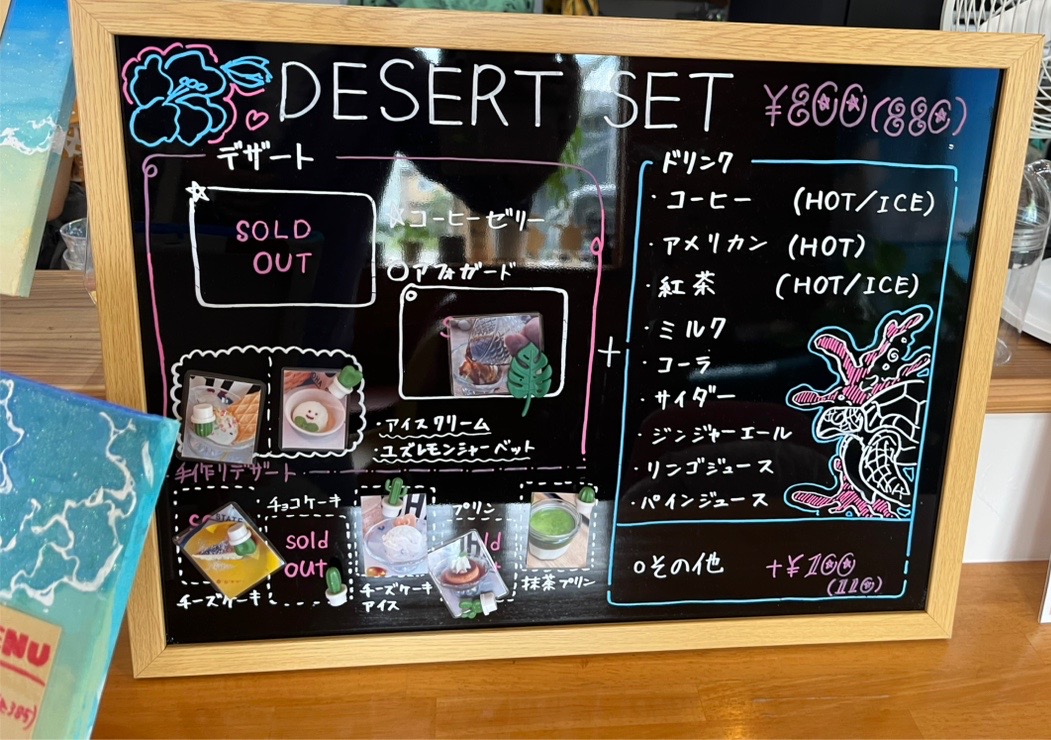 DESERT SET ¥800(880)
デザート
SOLD
OUT
☆コーヒーゼリー
○アフォガード
・アイスクリーム
・ユズレモンシャーベット
手作りデザート
・チョコケーキ
sold
out
チーズケーキ
チーズケーキ
アイス
プリン
抹茶プリン
+
ドリンク
・コーヒー (HOT/ICE)
・アメリカン (HOT)
・紅茶 (HOT/ICE)
・ミルク
・コーラ
・サイダー
・ジンジャーエール
・リンゴジュース
・パインジュース
○その他 +¥100
(110)
ENU
385)